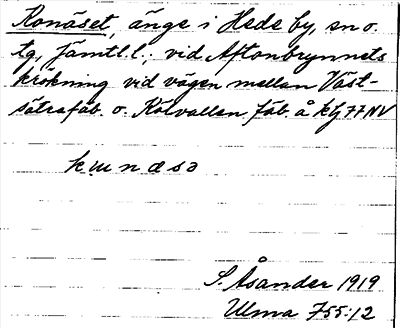 Konäset, änge i Hede by, sn o.
tg, Jämtl. l.; vid Aftonbrynnets
krökning vid vägen mellan Väst-
sätrafäb. o. Kölvallen fäb. å kbl 77 NV
kɯnæsə
S. Åsander 1919
Ulma 755:12